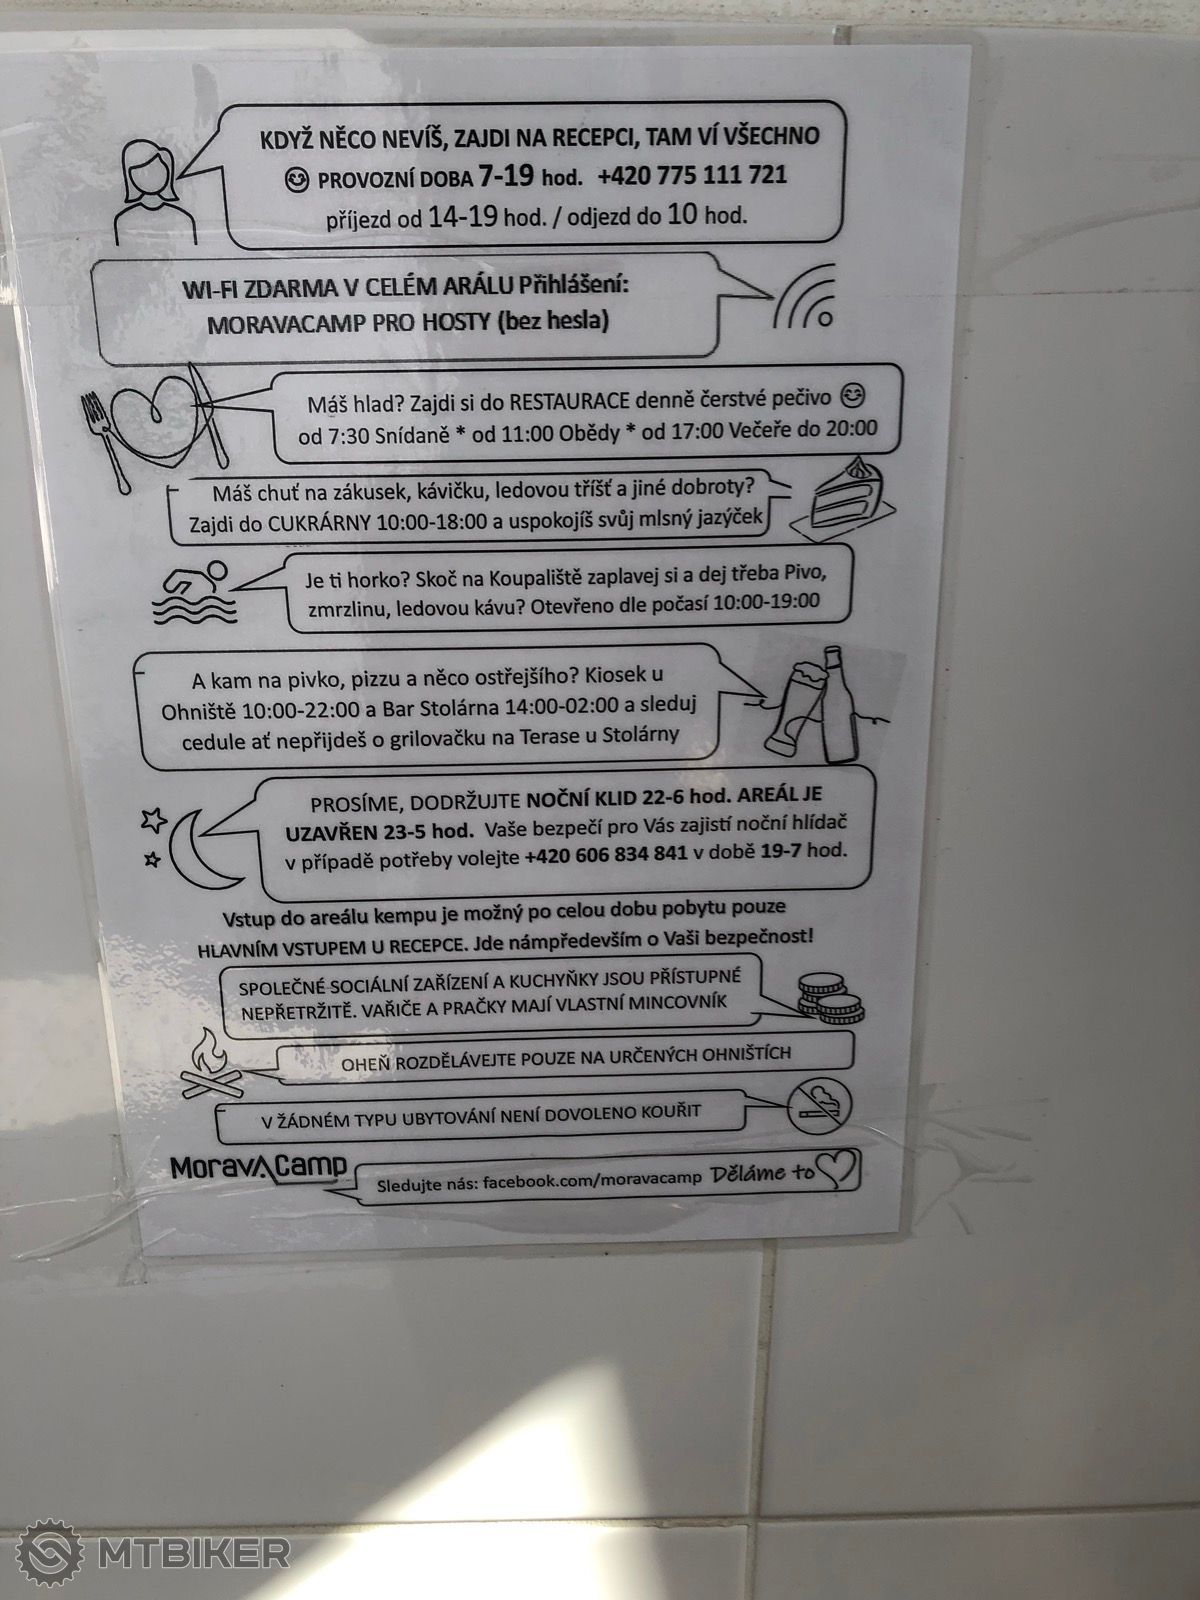 KDYŽ NĚCO NEVÍŠ, ZAJDI NA RECEPCI, TAM VÍ VŠECHNO
😊 PROVOZNÍ DOBA 7-19 hod. +420 775 111 721
příjezd od 14-19 hod. / odjezd do 10 hod.
WI-FI ZDARMA V CELÉM ARÁLU Přihlášení:
MORAVACAMP PRO HOSTY (bez hesla)
Máš hlad? Zajdi si do RESTAURACE denně čerstvé pečivo 😊
od 7:30 Snídaně * od 11:00 Obědy * od 17:00 Večeře do 20:00
Máš chuť na zákusek, kávičku, ledovou tříšť a jiné dobroty?
Zajdi do CUKRÁRNY 10:00-18:00 a uspokojíš svůj mlsný jazýček
Je ti horko? Skoč na Koupaliště zaplavej si a dej třeba Pivo,
zmrzlinu, ledovou kávu? Otevřeno dle počasí 10:00-19:00
A kam na pivko, pizzu a něco ostřejšího? Kiosek u
Ohniště 10:00-22:00 a Bar Stolárna 14:00-02:00 a sleduj
cedule ať nepřijdeš o grilovačku na Terase u Stolárny
PROSÍME, DODRŽUJTE NOČNÍ KLID 22-6 hod. AREÁL JE
UZAVŘEN 23-5 hod. Vaše bezpečí pro Vás zajistí noční hlídač
v případě potřeby volejte +420 606 834 841 v době 19-7 hod.
Vstup do areálu kempu je možný po celou dobu pobytu pouze
HLAVNÍM VSTUPEM U RECEPCE. Jde námpředevším o Vaši bezpečnost!
SPOLEČNÉ SOCIÁLNÍ ZAŘÍZENÍ A KUCHYŇKY JSOU PŘÍSTUPNÉ
NEPŘETRŽITĚ. VAŘIČE A PRAČKY MAJÍ VLASTNÍ MINCOVNÍK
OHEŇ ROZDĚLÁVEJTE POUZE NA URČENÝCH OHNIŠTÍCH
V ŽÁDNÉM TYPU UBYTOVÁNÍ NENÍ DOVOLENO KOUŘIT
MORAVACAMP
Sledujte nás: facebook.com/moravacamp Děláme to
MTBIKER